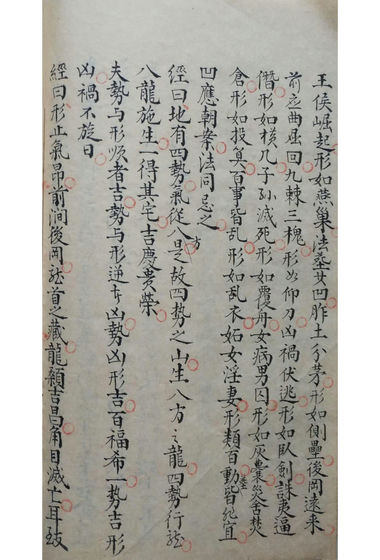 王侯崛起形如燕巢法葬其凹胙土分茅形如側壘後岡遠来
前应曲回九棘三槐形如仰刀凶禍伏逃形如臥劍誅夷逼
僭形如橫几子孫滅死形如覆舟女病男囚形如灰囊災舍焚
倉形如投算百事皆乱形如乱衣妬女淫妻形類百動葬皆非宜
凹應朝案法同忌之方
經曰地有四勢氣從八是故四勢之山生八方之龍四勢行龍
八龍施生一得其宅吉慶贵榮
夫勢与形順者吉勢与形逆者凶勢凶形吉百福希一勢吉形
凶禍不旋日
經曰形止氣昂前澗後岡龍首之藏龍顙吉昌角目滅亡耳致